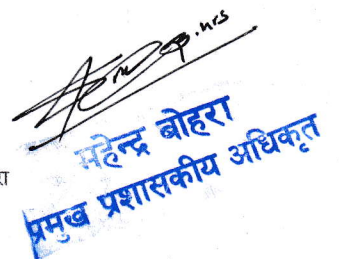 महेन्द्र बोहरा
प्रमुख प्रशासकीय अधिकृत